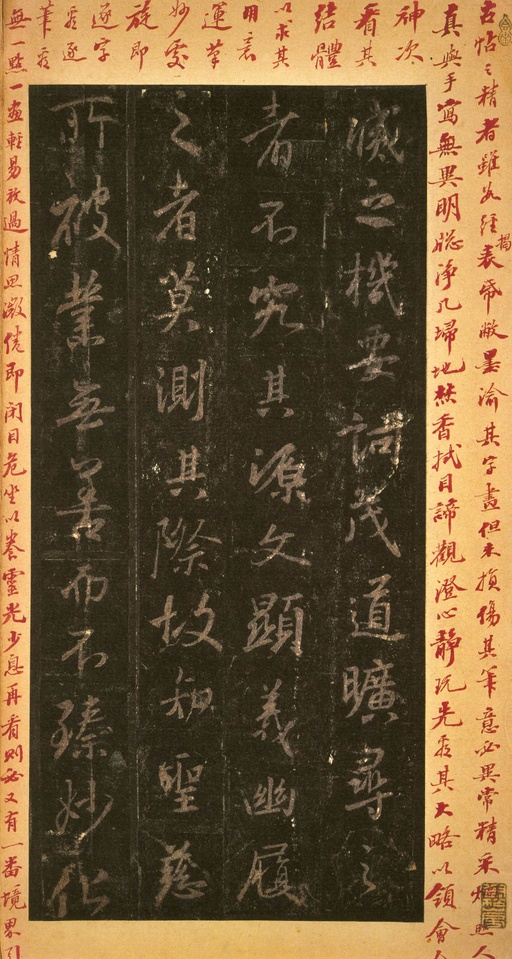 古帖之精者雖經揭表帋敝墨渝其字畫但未損傷其筆意必異常精采照人
真與手寫無異明牕淨几埽地焚香拭目諦觀澄心靜玩先看其大略以領會
神次
看其
結體
以求其
用意
運筆
妙處
旋即
逐字
看逐
筆看
滅之機要詞茂道曠尋之
者不究其源文顯義幽履
之者莫測其際故知聖慈
所被業無善而不臻妙化
無一點一畫輕易放過情思微倦即閉目危坐以養靈光少息再看則必又有一番境界引